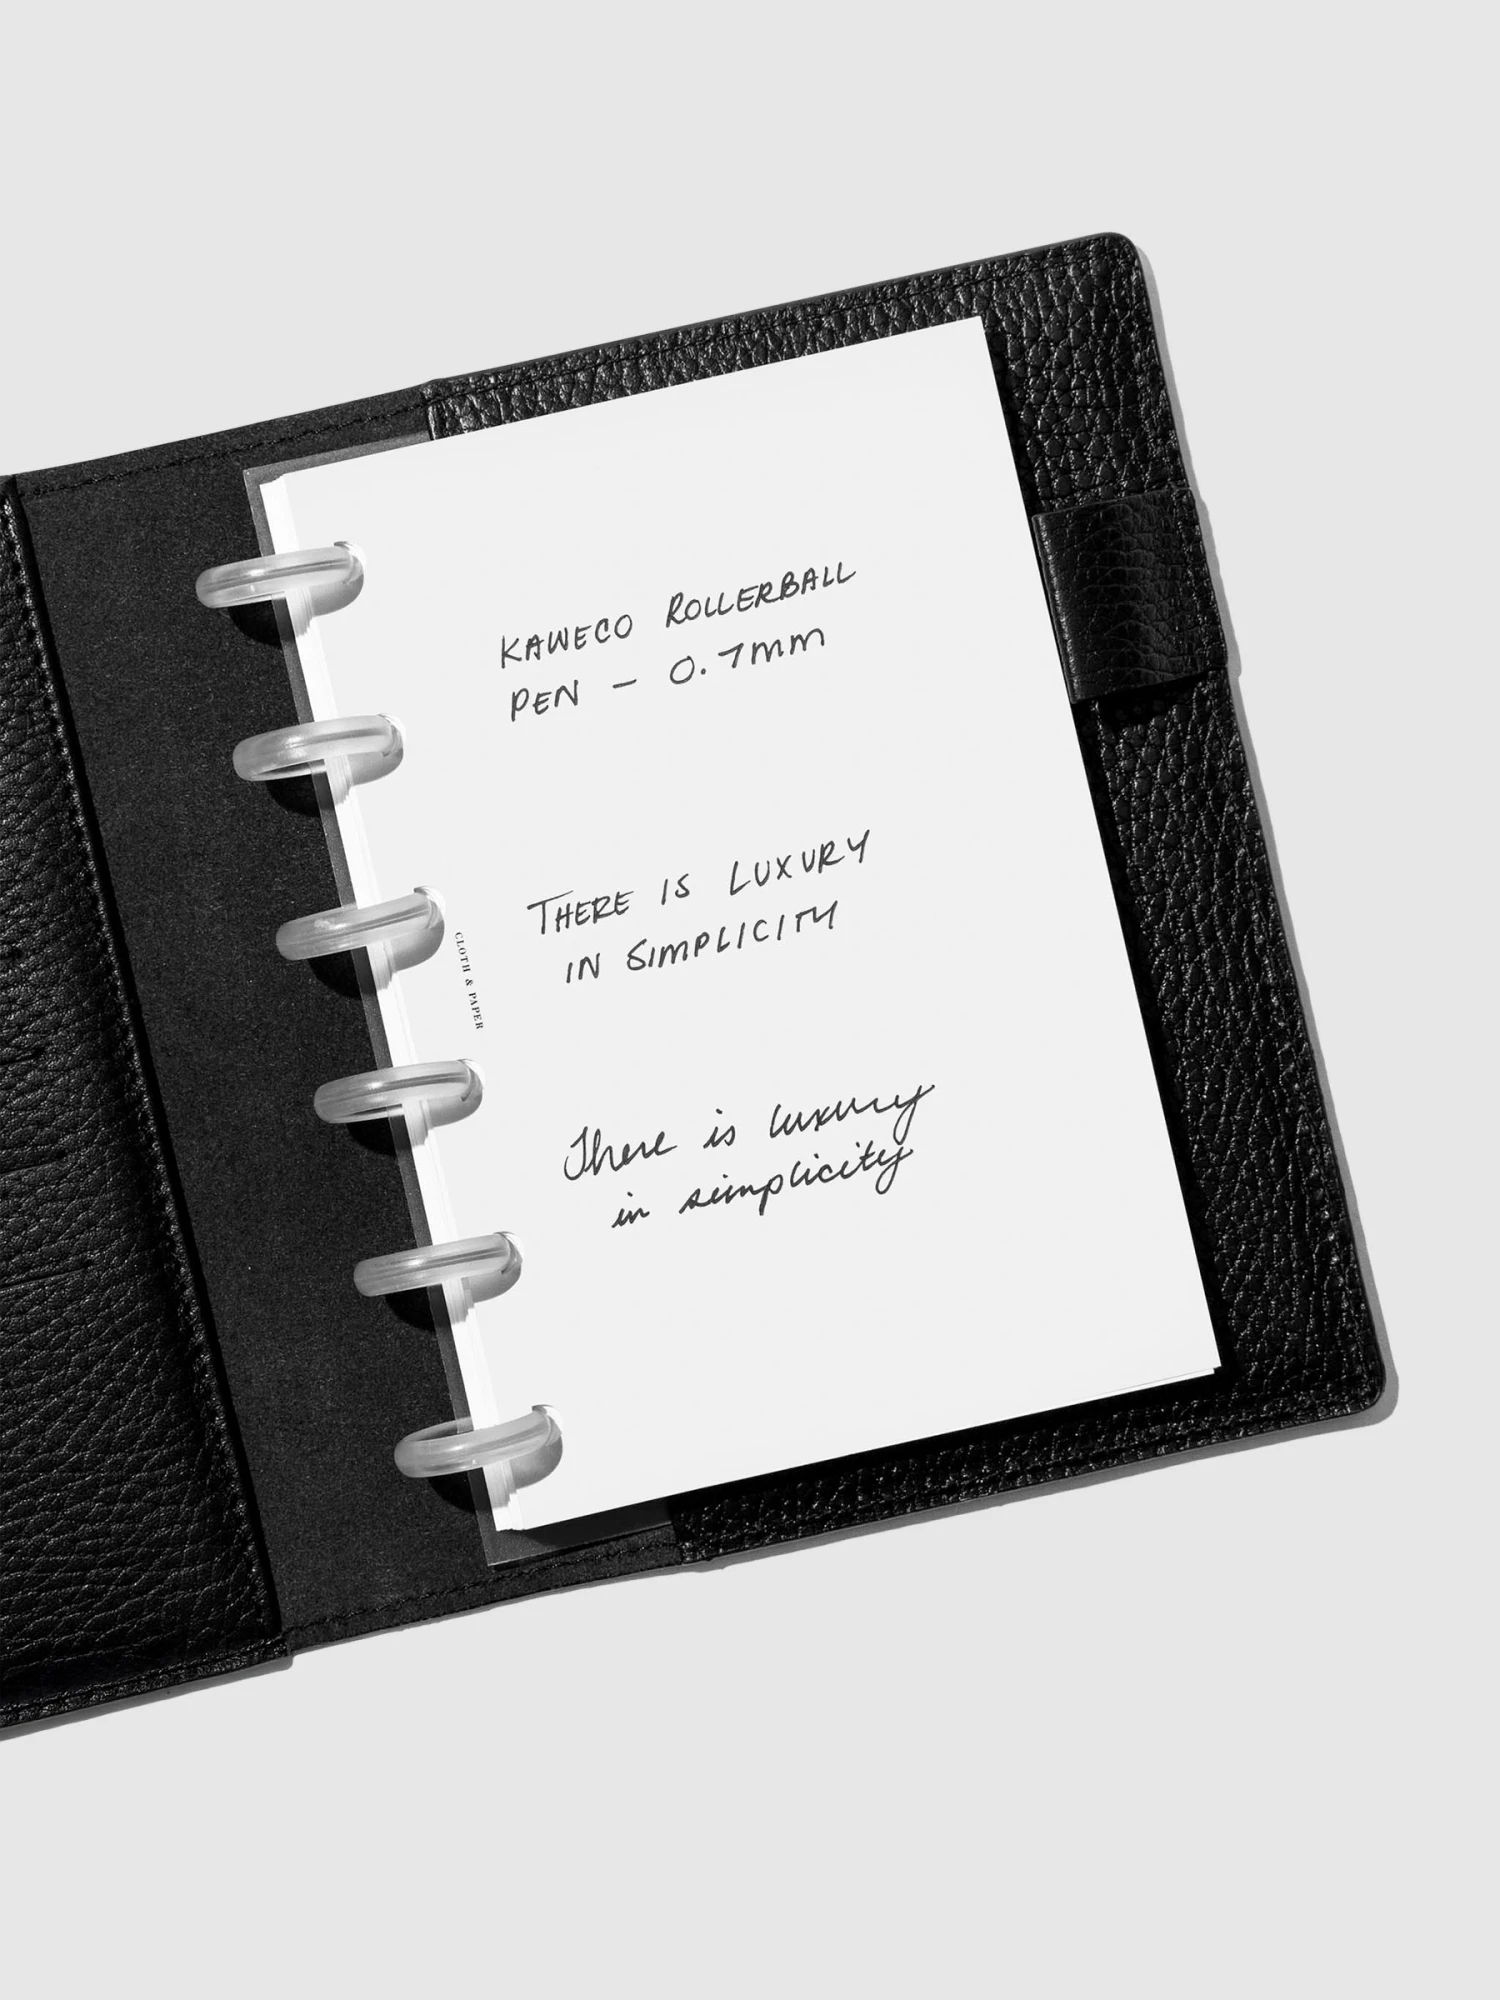 KAWECO ROLLERBALL
PEN - 0.7mm
THERE IS LUXURY
IN SIMPLICITY
CLOTH & PAPER
There is luxury
in simplicity